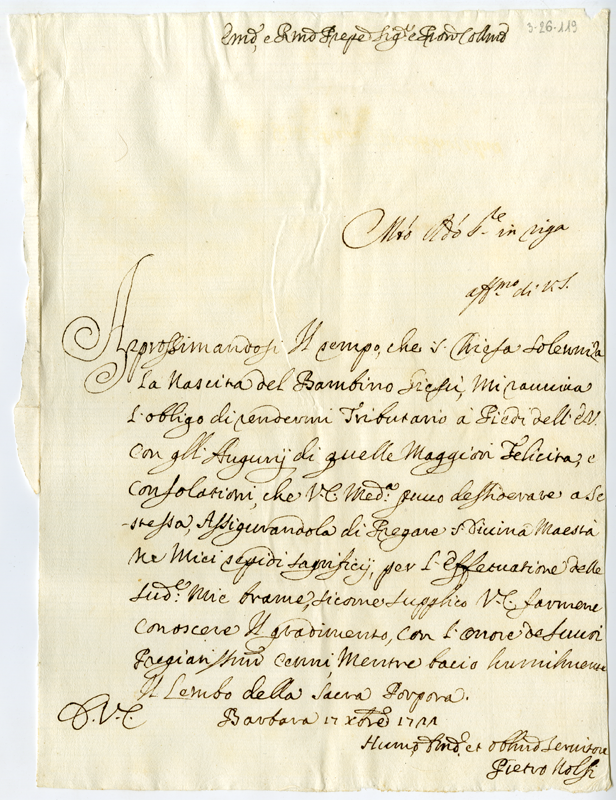 Emo, e Rmo Prpe Sigr, e Pron Colmo
3-26-119
in riga
affmo di V.S.
Approssimandosi Il tempo, che S. Chiesa solenniza
La Nascita del Bambino Giesù, Mi ravviva
L'obligo di rendermi Tributario a Piedi dell'E.V.
Con gli Augurij di quelle Maggiori Felicità, e
Consolationi, che V.E. Medma puuo dessiderare a Se
stessa, Assigurandola di Pregare S. Divina Maestà
Ne Miei tepidi sagrificij, per L'effetuatione delle
Sude Mie brame, sicome supplico V.E. farmene
conoscere Il gradimento, con L'onore de suoi
Pregiatissimi cenni, Mentre bacio humilmente
Il Lembo della Sacra Porpora.
D.V.E.
Barbara 17 Xbre 1711
Humo Dmo et oblmo Servitore
Pietro Nolfi